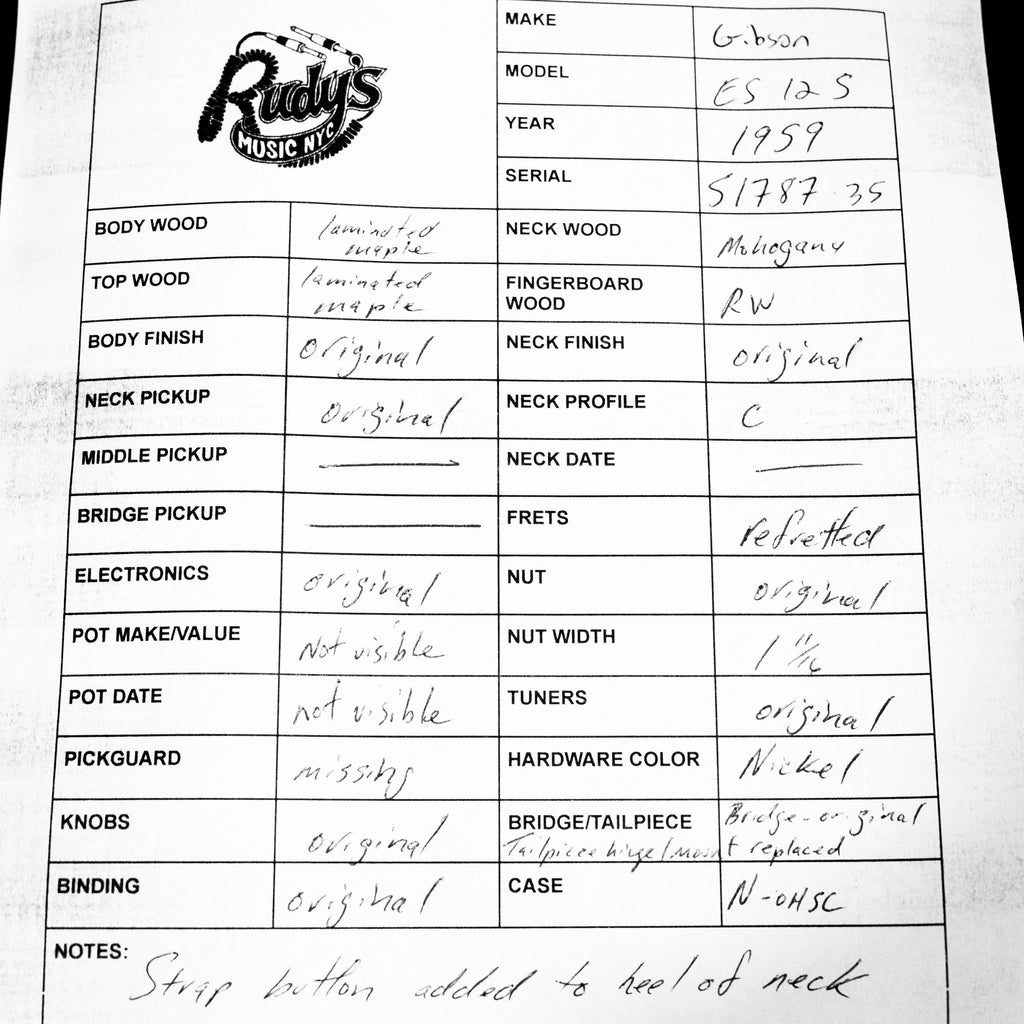 Rudy's
MUSIC NYC
MAKE Gibson
MODEL ES 125
YEAR 1959
SERIAL S1787 35
BODY WOOD laminated maple
NECK WOOD Mohogany
TOP WOOD laminated maple
FINGERBOARD WOOD RW
BODY FINISH original
NECK FINISH original
NECK PICKUP original
NECK PROFILE C
MIDDLE PICKUP —
NECK DATE —
BRIDGE PICKUP —
FRETS refretted
ELECTRONICS original
NUT original
POT MAKE/VALUE Not visible
NUT WIDTH 1 11/16
POT DATE not visible
TUNERS original
PICKGUARD missing
HARDWARE COLOR Nickel
KNOBS original
BRIDGE/TAILPIECE Bridge - original
Tailpiece hinge/mount replaced
BINDING original
CASE N-OHSC
NOTES: Strap button added to heel of neck